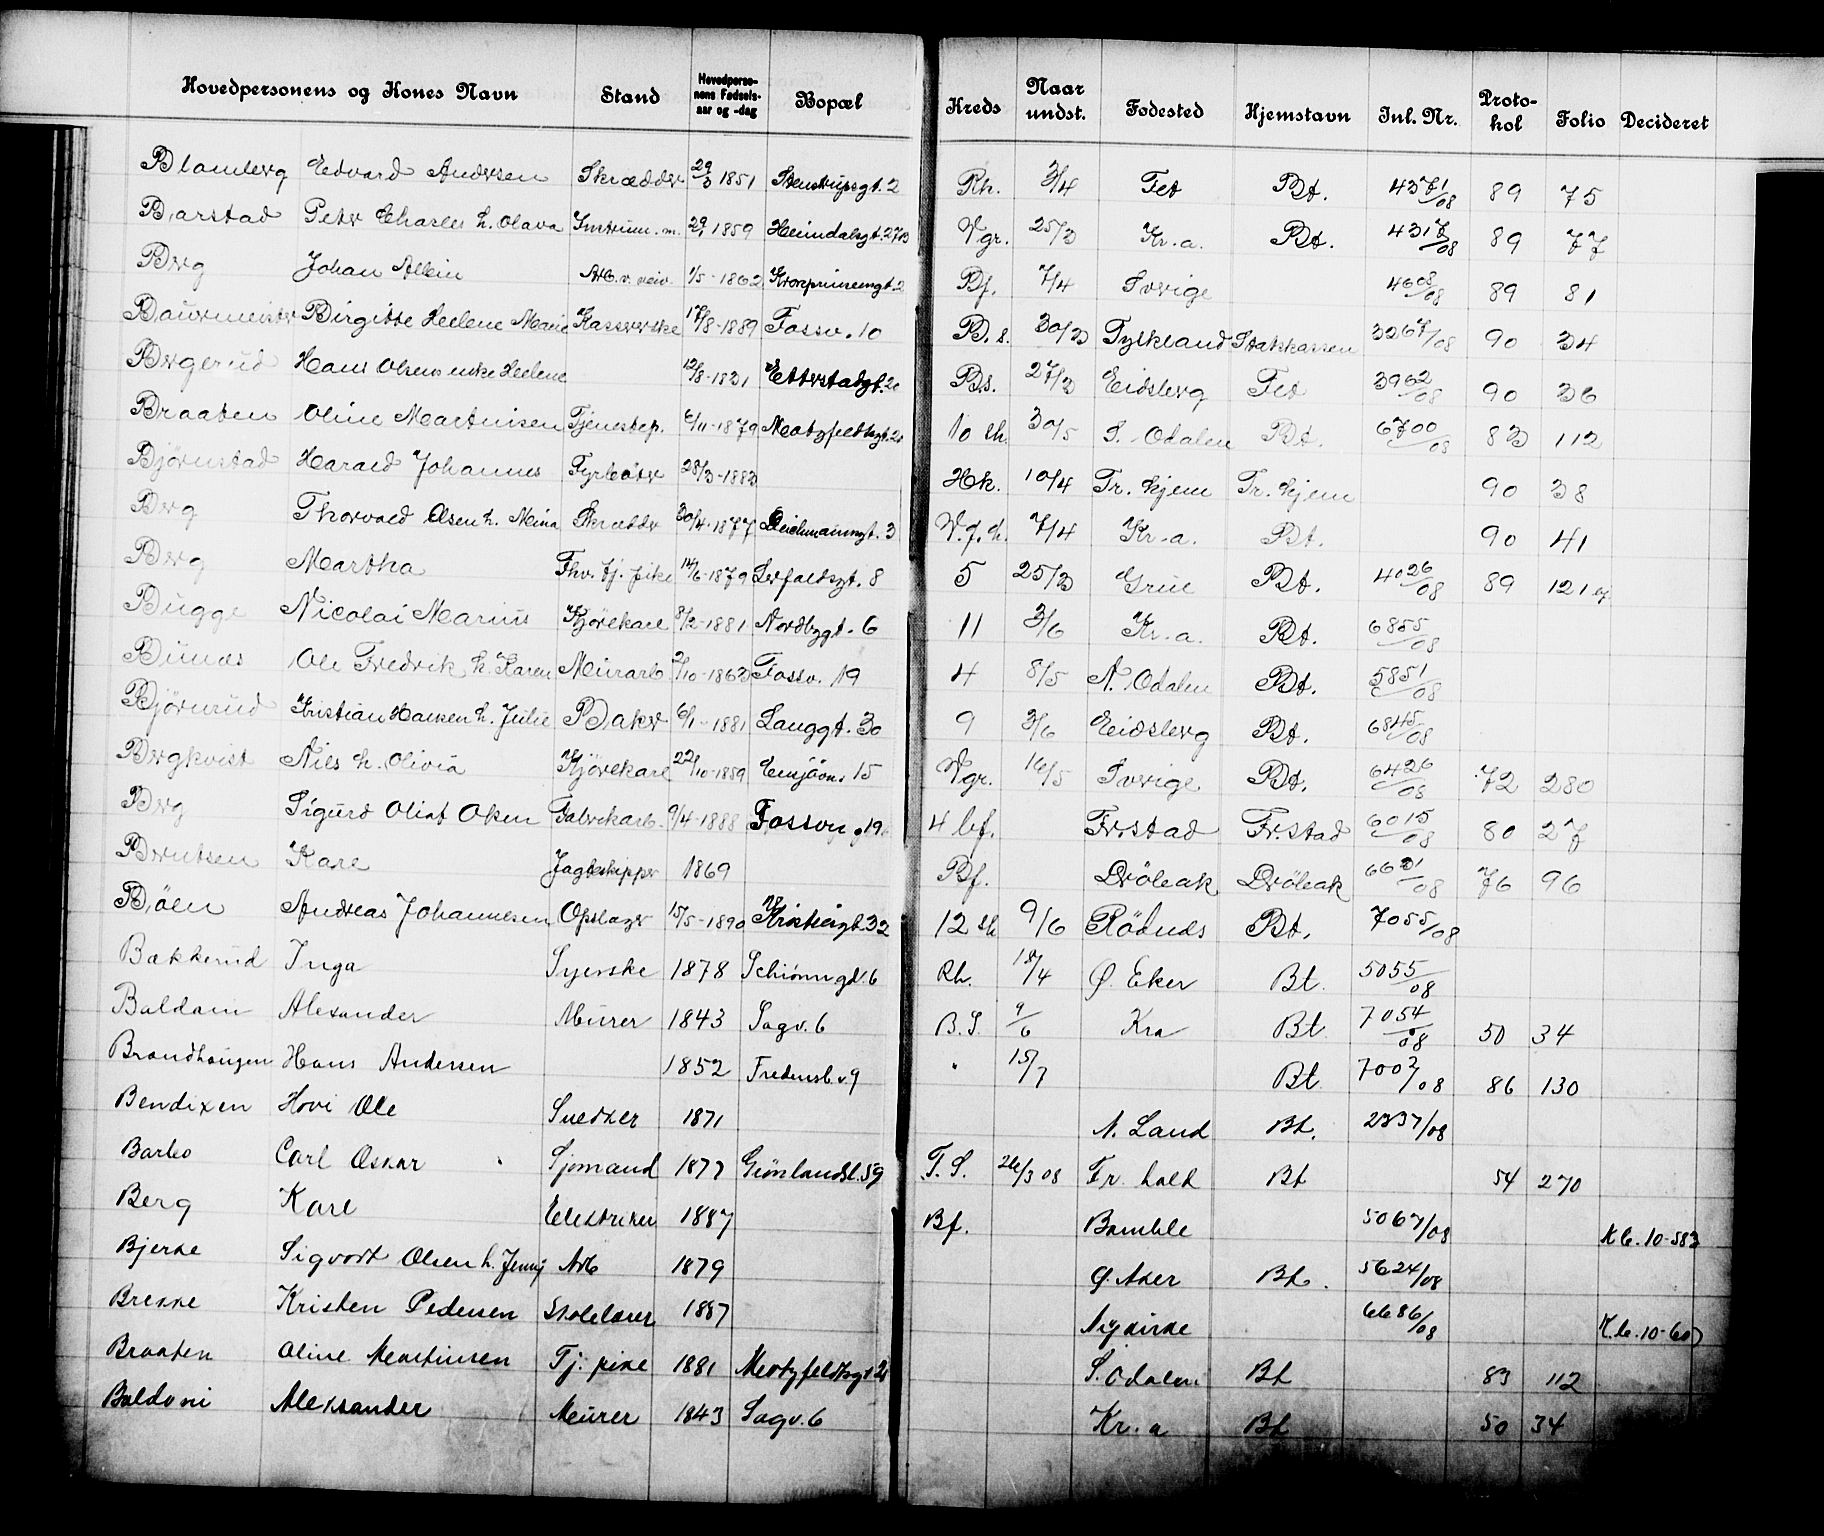 Hovedpersonens og Kones Navn | Stand | Hovedpersonens Fødsels-aar og -dag | Bopæl | Kreds | Naar undst. | Fødested | Hjemstavn | Inl. Nr. | Protokol | Folio | Decideret
Blomberg Edvard Andersen | Skrædder | 29/3 1851 | Stenstrupsgt. 2 | Rh. | 3/4 | Fet | Bt. | 4371/08 | 89 | 75
Barstad Peter Charles h. Olava | Instrum. m. | 29/1 1859 | Heimdalsgt. 27 B | Vgr. | 25/3 | Kr.a. | Bt. | 4317/08 | 89 | 77
Berg Johan Albin | Arb. v. veiv. | 1/5-1862 | Kronprinsensgt. 2 | Bf. | 7/4 | Sverige | 4608/08 | 89 | 81
Bauermeister Birgitte Helene Marie | Kassererske | 17/8-1889 | Fossv. 10 | B.s. | 30/3 | Tyskland | Statskassen | 3267/08 | 90 | 34
Bergerud Hans Olsens enke Helene | 12/8-1831 | Etterstadgt. 20 | Bs. | 27/3 | Eidsberg | Fet | 3962/08 | 90 | 36
Braaten Oline Martinsen | Tjenestep. | 6/11-1879 | Motzfeldtsgt. 21 | 10 sk. | 30/5 | S. Odalen | Bt. | 6700/08 | 83 | 112
Björnstad Harald Johannes | Fyrböter | 28/3-1883 | Hk. | 10/4 | Tr.hjem | Tr.hjem | 90 | 38
Berg Thorvald Olsen h. Mina | Skrædder | 30/4-1877 | Deichmannsgt. 3 | V.f.h. | 7/4 | Kr.a. | Bt. | 90 | 41
Berg Martha | Fhv. tj. pike | 14/6-1879 | Lerfaldsgt. 8 | 5 | 25/3 | Grue | Bt. | 4026/08 | 89 | 121
Bugge Nicolai Marius | Kjörekarl | 8/2-1881 | Nordbygt. 6 | 11 | 3/6 | Kr.a. | Bt. | 6855/08
Bünæs Ole Fredrik h. Karen | Murarb. | 2/10-1863 | Fossv. 19 | 4 | 8/5 | N. Odalen | Bt. | 5851/08
Björnrud Kristian Hansen h. Julie | Baker | 6/1-1881 | Langgt. 30 | 9 | 3/6 | Eidsberg | Bt. | 6845/08
Bergkvist Nils h. Olivia | Kjörekarl | 22/10-1859 | Ensjövn. 15 | Vgr. | 16/5 | Sverige | Bt. | 6426/08 | 72 | 280
Berg Sigurd Oliaf Olsen | Fabrikarb. | 9/4-1888 | Fossvn. 19 | 4 bf. | Fr.stad | Fr.stad | 6015/08 | 80 | 27
Berntsen Karl | Jagtskipper | 1869 | Bf. | Dröbak | Dröbak | 6601/08 | 76 | 96
Böen Andreas Johannesen | Opslager | 15/5-1890 | Kristiesgt. 32 | 12 sk | 9/6 | Rödnæs | Bt. | 7055/08
Bakkerud Inga | Syerske | 1878 | Schönngd. 6 | Rh. | 18/4 | Ø. Eker | Bt. | 5055/08
Baldoni Alexander | Murer | 1843 | Sagv. 6 | B.S. | 9/6 | Kra | Bt | 7054/08 | 50 | 34
Brandhaugen Hans Andersen | 1852 | Fredensb.v. 9 | " | 15/7 | Bt | 7002/08 | 86 | 130
Bendixen Hovi Ole | Snedker | 1871 | N. Land | Bt. | 2337/08
Barbo Carl Oskar | Sjømand | 1877 | Grønlandsl. 59 | F.S. | 26/3 08 | Fr. hald | Bt | 54 | 270
Berg Karl | Elektriker | 1887 | Bf. | Bamble | 5067/08 | K b. 10-583
Bjerke Sigvart Olsen h. Jenny | Arb | 1879 | Ø. Aker | Bt. | 5624/08
Brekke Kristen Pedersen | Skolelærer | 1887 | Nykirke | 6686/08 | K.b. 10-607
Braaten Oline Martinsen | Tj. pike | 1881 | Motzfeldtsgt 21 | S. Odalen | Bt | 83 | 112
Baldoni Aleksander | Murer | 1843 | Sagv. 6 | Kr.a | Bt | 50 | 34